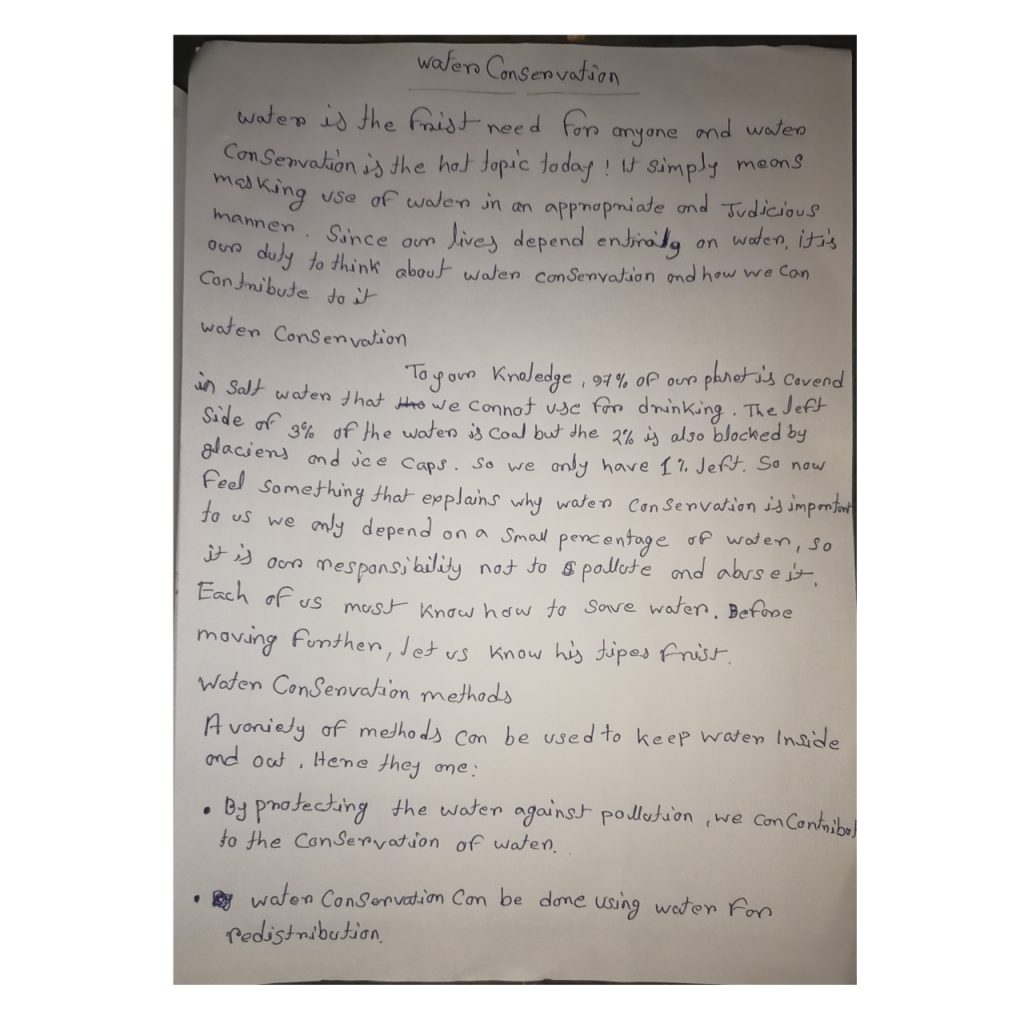 Water Conservation
Water is the frist need for anyone and water
Conservation is the hot topic today! It simply means
masking use of water in an appropriate and Judicious
manner. Since our lives depend entiraily on water, it is
our duly to think about water conservation and how we can
Contribute to it
water Conservation
To your Knoledge, 97% of our planet is Coverd
in Salt water that we cannot use for drinking. The left
side of 3% of the water is Coal but the 2% is also blocked by
glaciers and ice caps. So we only have 1% left. So now
feel something that explains why water Conservation is important
to us we only depend on a small percentage of water, so
it is our responsibility not to pollute and abuse it.
Each of us must know how to save water. Before
moving further, let us know his tipes frist.
Water Conservation methods
A variety of methods can be used to keep water Inside
and out. Here they are:
• By protecting the water against pollution, we can Contribut
to the Conservation of water.
• water Conservation Can be done using water for
redistribution.